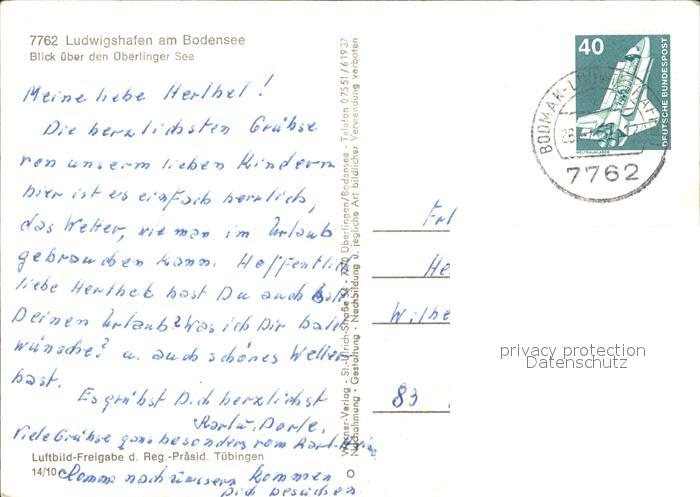 7762 Ludwigshafen am Bodensee
Blick über den Überlinger See
Meine liebe Herthel!
Die herzlichsten Grühse
von unserm lieben Kindern
hier ist es einfach herrlich,
das Wetter, wie man im Urlaub
gebrauchen kann. Hoffentlich
liebe Herthel hast Du auch bald
Deinen Urlaub? Was ich Dir bald
wünsche? u. auch schönes Wetter
hast.
Es grühst Dich herzlichst
Karl u. Dorle.
Viele Grühse ganz besonders vom Karl-Heinz
Komme nach unsern kommen
Dich besuchen
Luftbild-Freigabe d. Reg.-Präsid. Tübingen
14/10
Werner-Verlag - St.-Ulrich-Straße 34 - 7770 Überlingen/Bodensee - Telefon 07551/61937
Nachahmung - Gestaltung - Nachbildung u. jegliche Art bildlicher Verwendung verboten
40
DEUTSCHE BUNDESPOST
BODMAN-
7762
Frl
He
Wilhe
83
privacy protection
Datenschutz